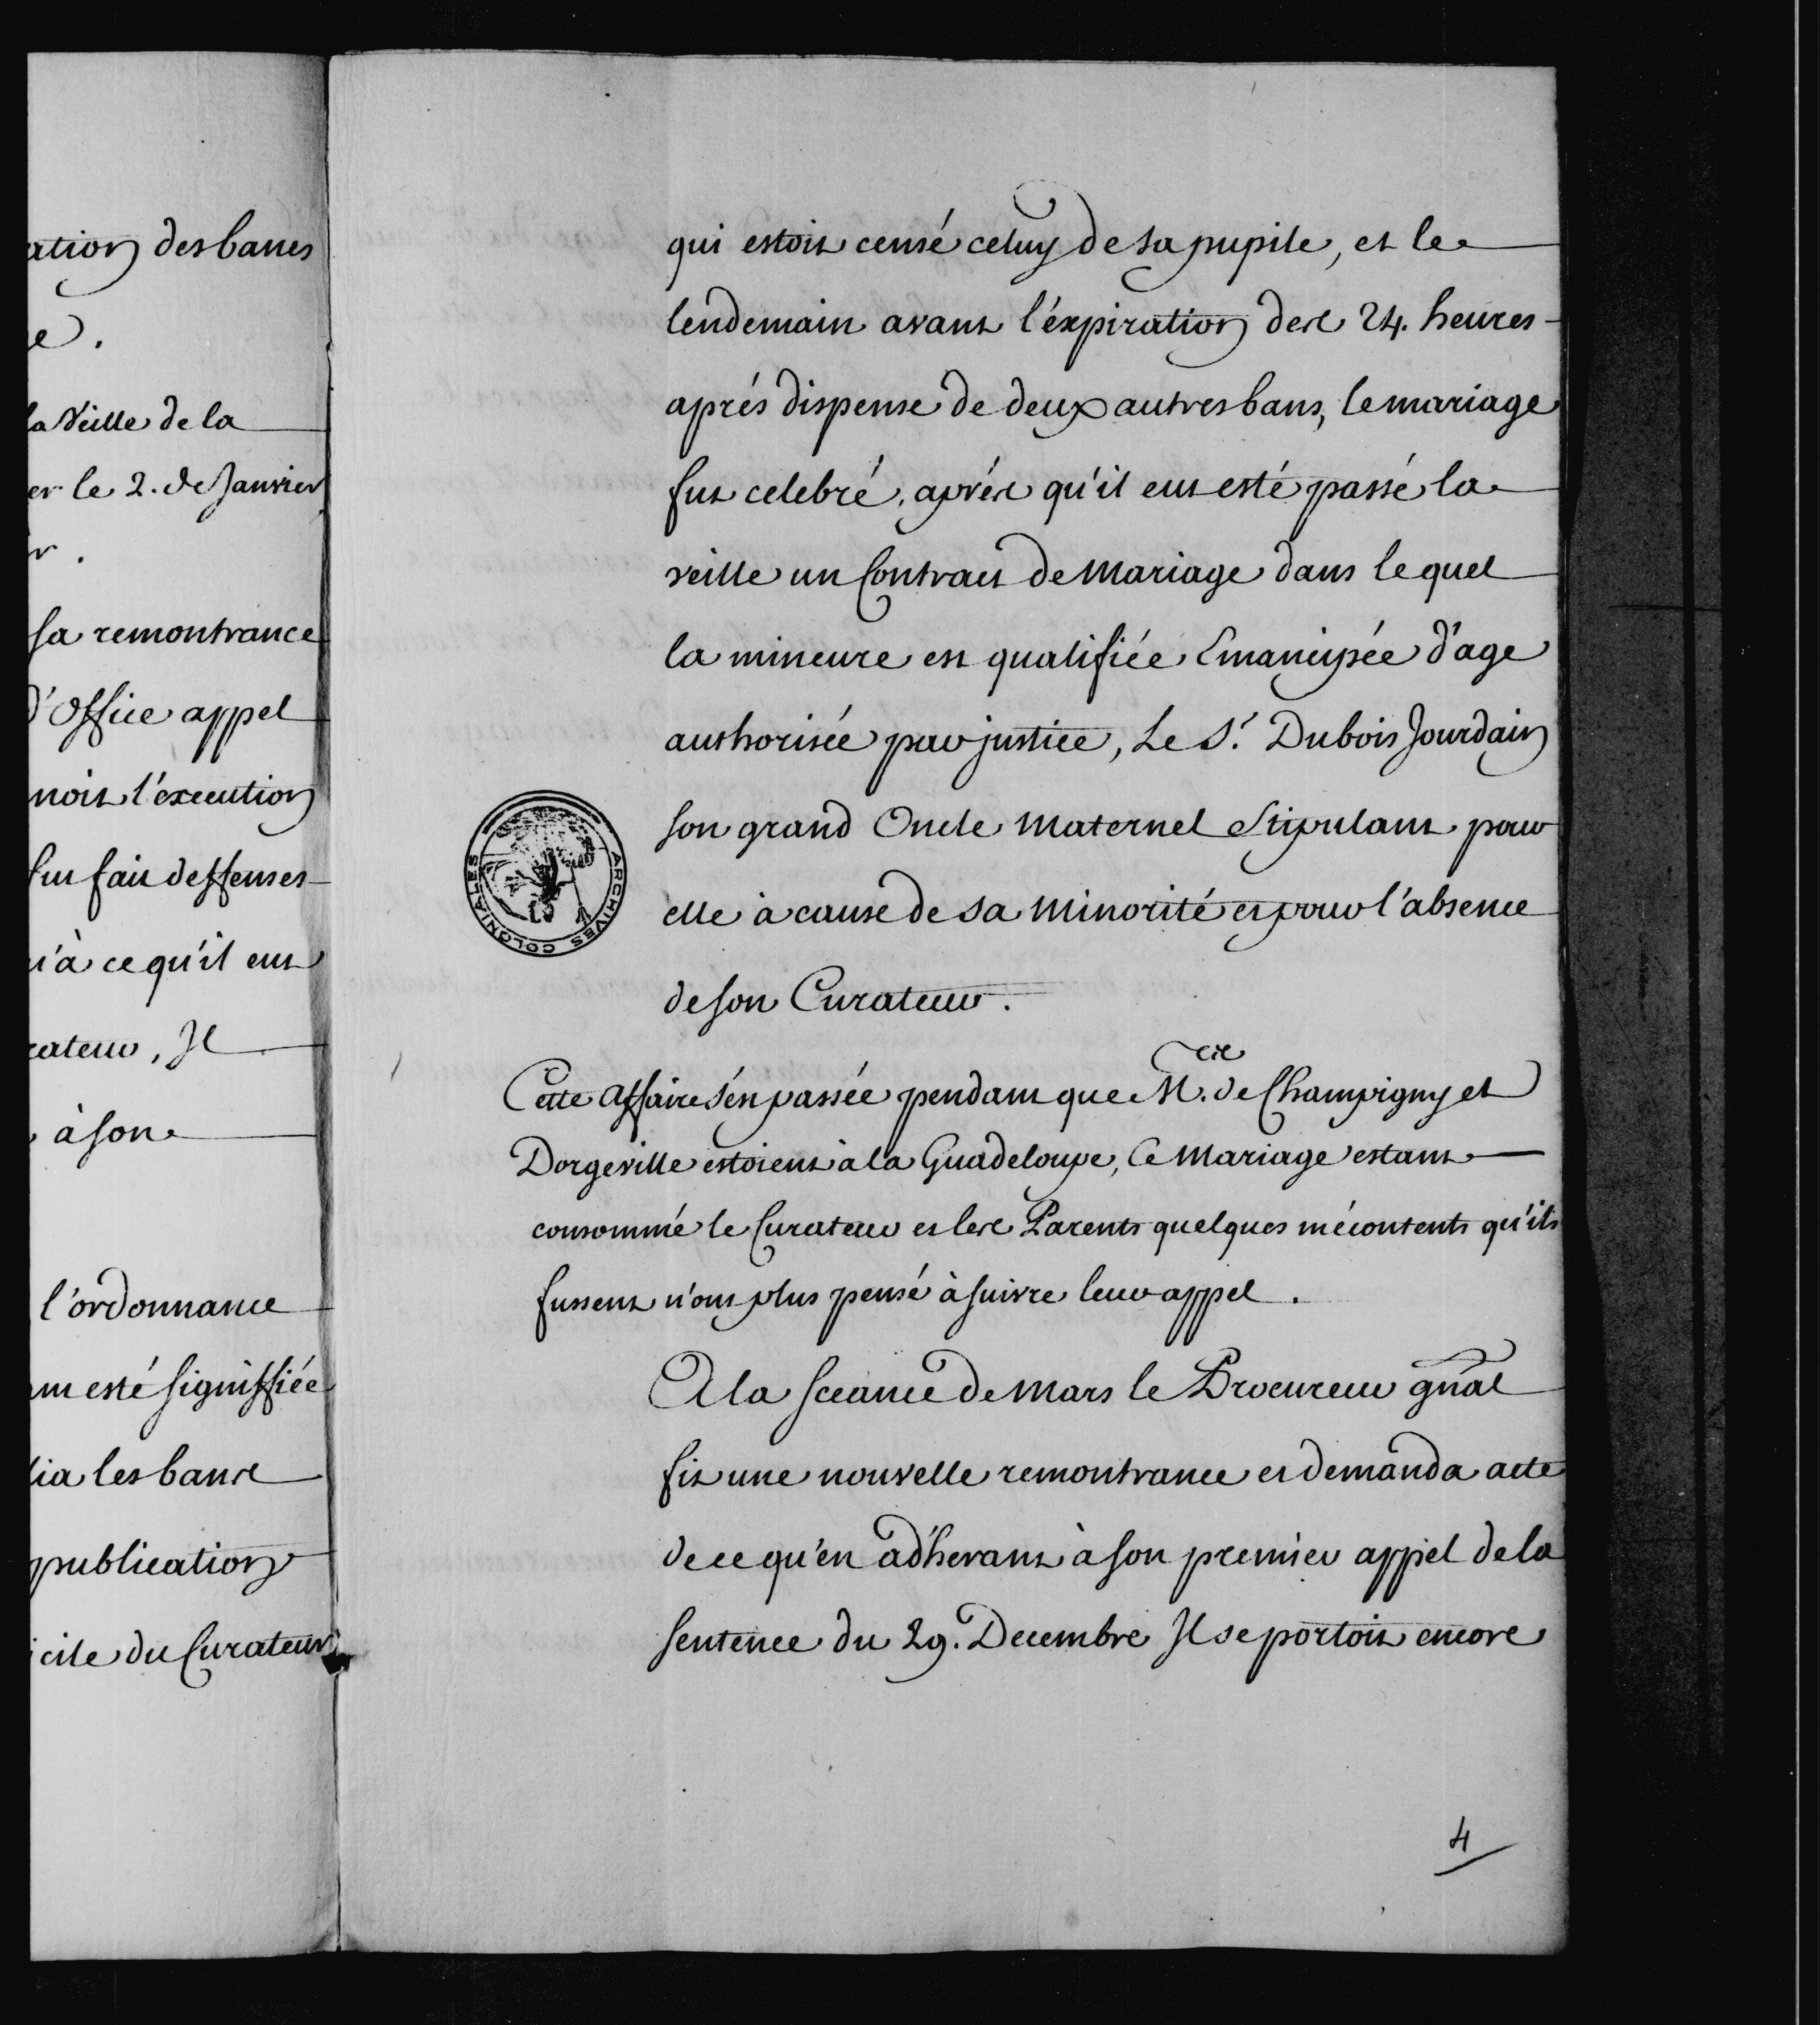 ation des banes
e.
la Veille de la
er le 2. de Janvier
r.
sa remontrance
d'Office appel
noit l'execution
fut fait deffenses
u'à ce qu'il eut
rateur, Il
à son
l'ordonnance
ant esté signiffiée
lia les bans
publication
icile du Curateur
qui estoit censé celuy de sa pupile, et le
lendemain avant l'éxpiration des 24. heures
aprés dispense de deux autres bans, le mariage
fut celebré, aprés qu'il eut esté passé la
veille un Contract de Mariage dans le quel
la mineure est qualifiée Emancipée d'age
authorisée par justice, Le S.r Dubois Jourdain
son grand Oncle Maternel Stipulant pour
elle à cause de sa Minorité et pour l'absence
de son Curateur.
ARCHIVES COLONIALES
Cette affaire s'est passée pendant que M.rs de Champigny et
Dorgeville estoient à la Guadeloupe, Ce Mariage estant
consommé le Curateur et les Parents quelques mécontents qu'ils
fussent n'ont plus pensé à suivre leur appel.
A la sceance de Mars le Procureur gñal
fit une nouvelle remontrance et demanda acte
de ce qu'en adhérant à son premier appel de la
sentence du 29. Decembre Il se portoit encore
4